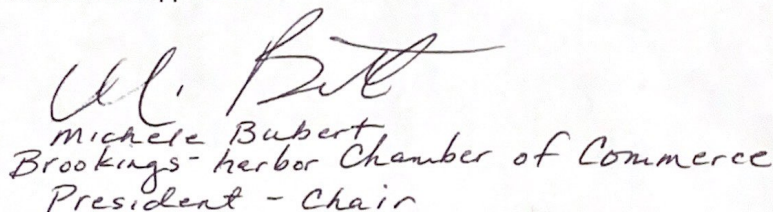 M. B
Michele Bubert
Brookings-harbor Chamber of Commerce
President - Chair